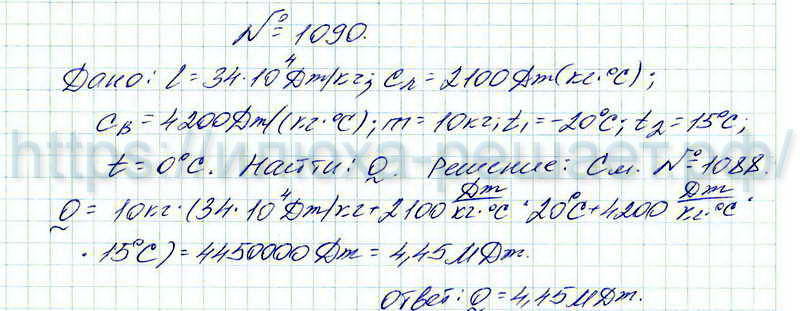 № 1090.
Дано: l = 34·10⁴ Дж/кг; cл = 2100 Дж(кг·°C);
cв = 4200 Дж/(кг·°C); m = 10кг; t₁ = -20°C; t₂ = 15°C;
t = 0°C. Найти: Q. Решение: См. № 1088.
Q = 10кг·(34·10⁴ Дж/кг + 2100 Дж/кг·°C · 20°C + 4200 Дж/кг·°C ·
· 15°C) = 4450000 Дж = 4,45 МДж.
Ответ: Q = 4,45 МДж.
https://илюха-решает.рф/